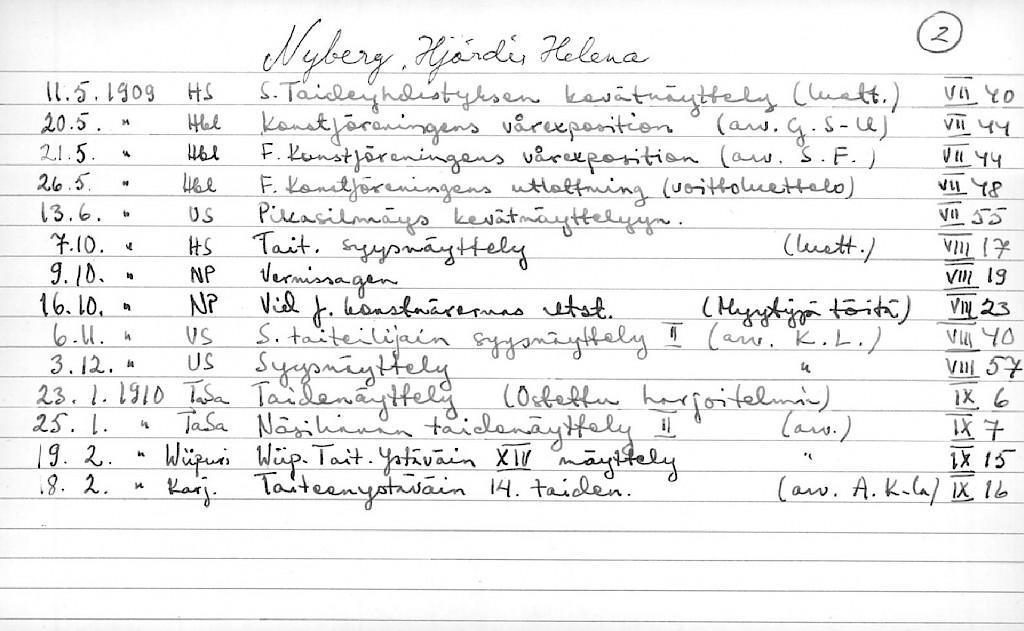 2
Nyberg, Hjördis Helena
11.5. 1909 HS S. Taideyhdistyksen kevätnäyttely (luett.) VII 40
20.5. " Hbl Konstföreningens vårexposition (arv. G. S-ll) VII 44
21.5. " Hbl F. Konstföreningens vårexposition (arv. S. F.) VII 44
26.5. " Hbl F. Konstföreningens utlottning (voittoluettelo) VII 48
13.6. " US Pikasilmäys kevätnäyttelyyn. VII 55
7.10. " HS Tait. syysnäyttely (luett.) VIII 17
9.10. " NP Vernissagen VIII 19
16.10. " NP Vid f. konstnärernas utst. (Myytyjä töitä) VIII 23
6.11. " US S. taiteilijain syysnäyttely II (arv. K. L.) VIII 40
3.12. " US Syysnäyttely " VIII 57
23. 1. 1910 TaSa Taidenäyttely (Ostettu harjoitelmia) IX 6
25. 1. " TaSa Näsilinnan taidenäyttely II (arv.) IX 7
19. 2. " Wiipuri Wiip. Tait. Ystäväin XIV näyttely " IX 15
18. 2. " Karj. Taiteenystäväin 14. taiden. (arv. A. K-la) IX 16